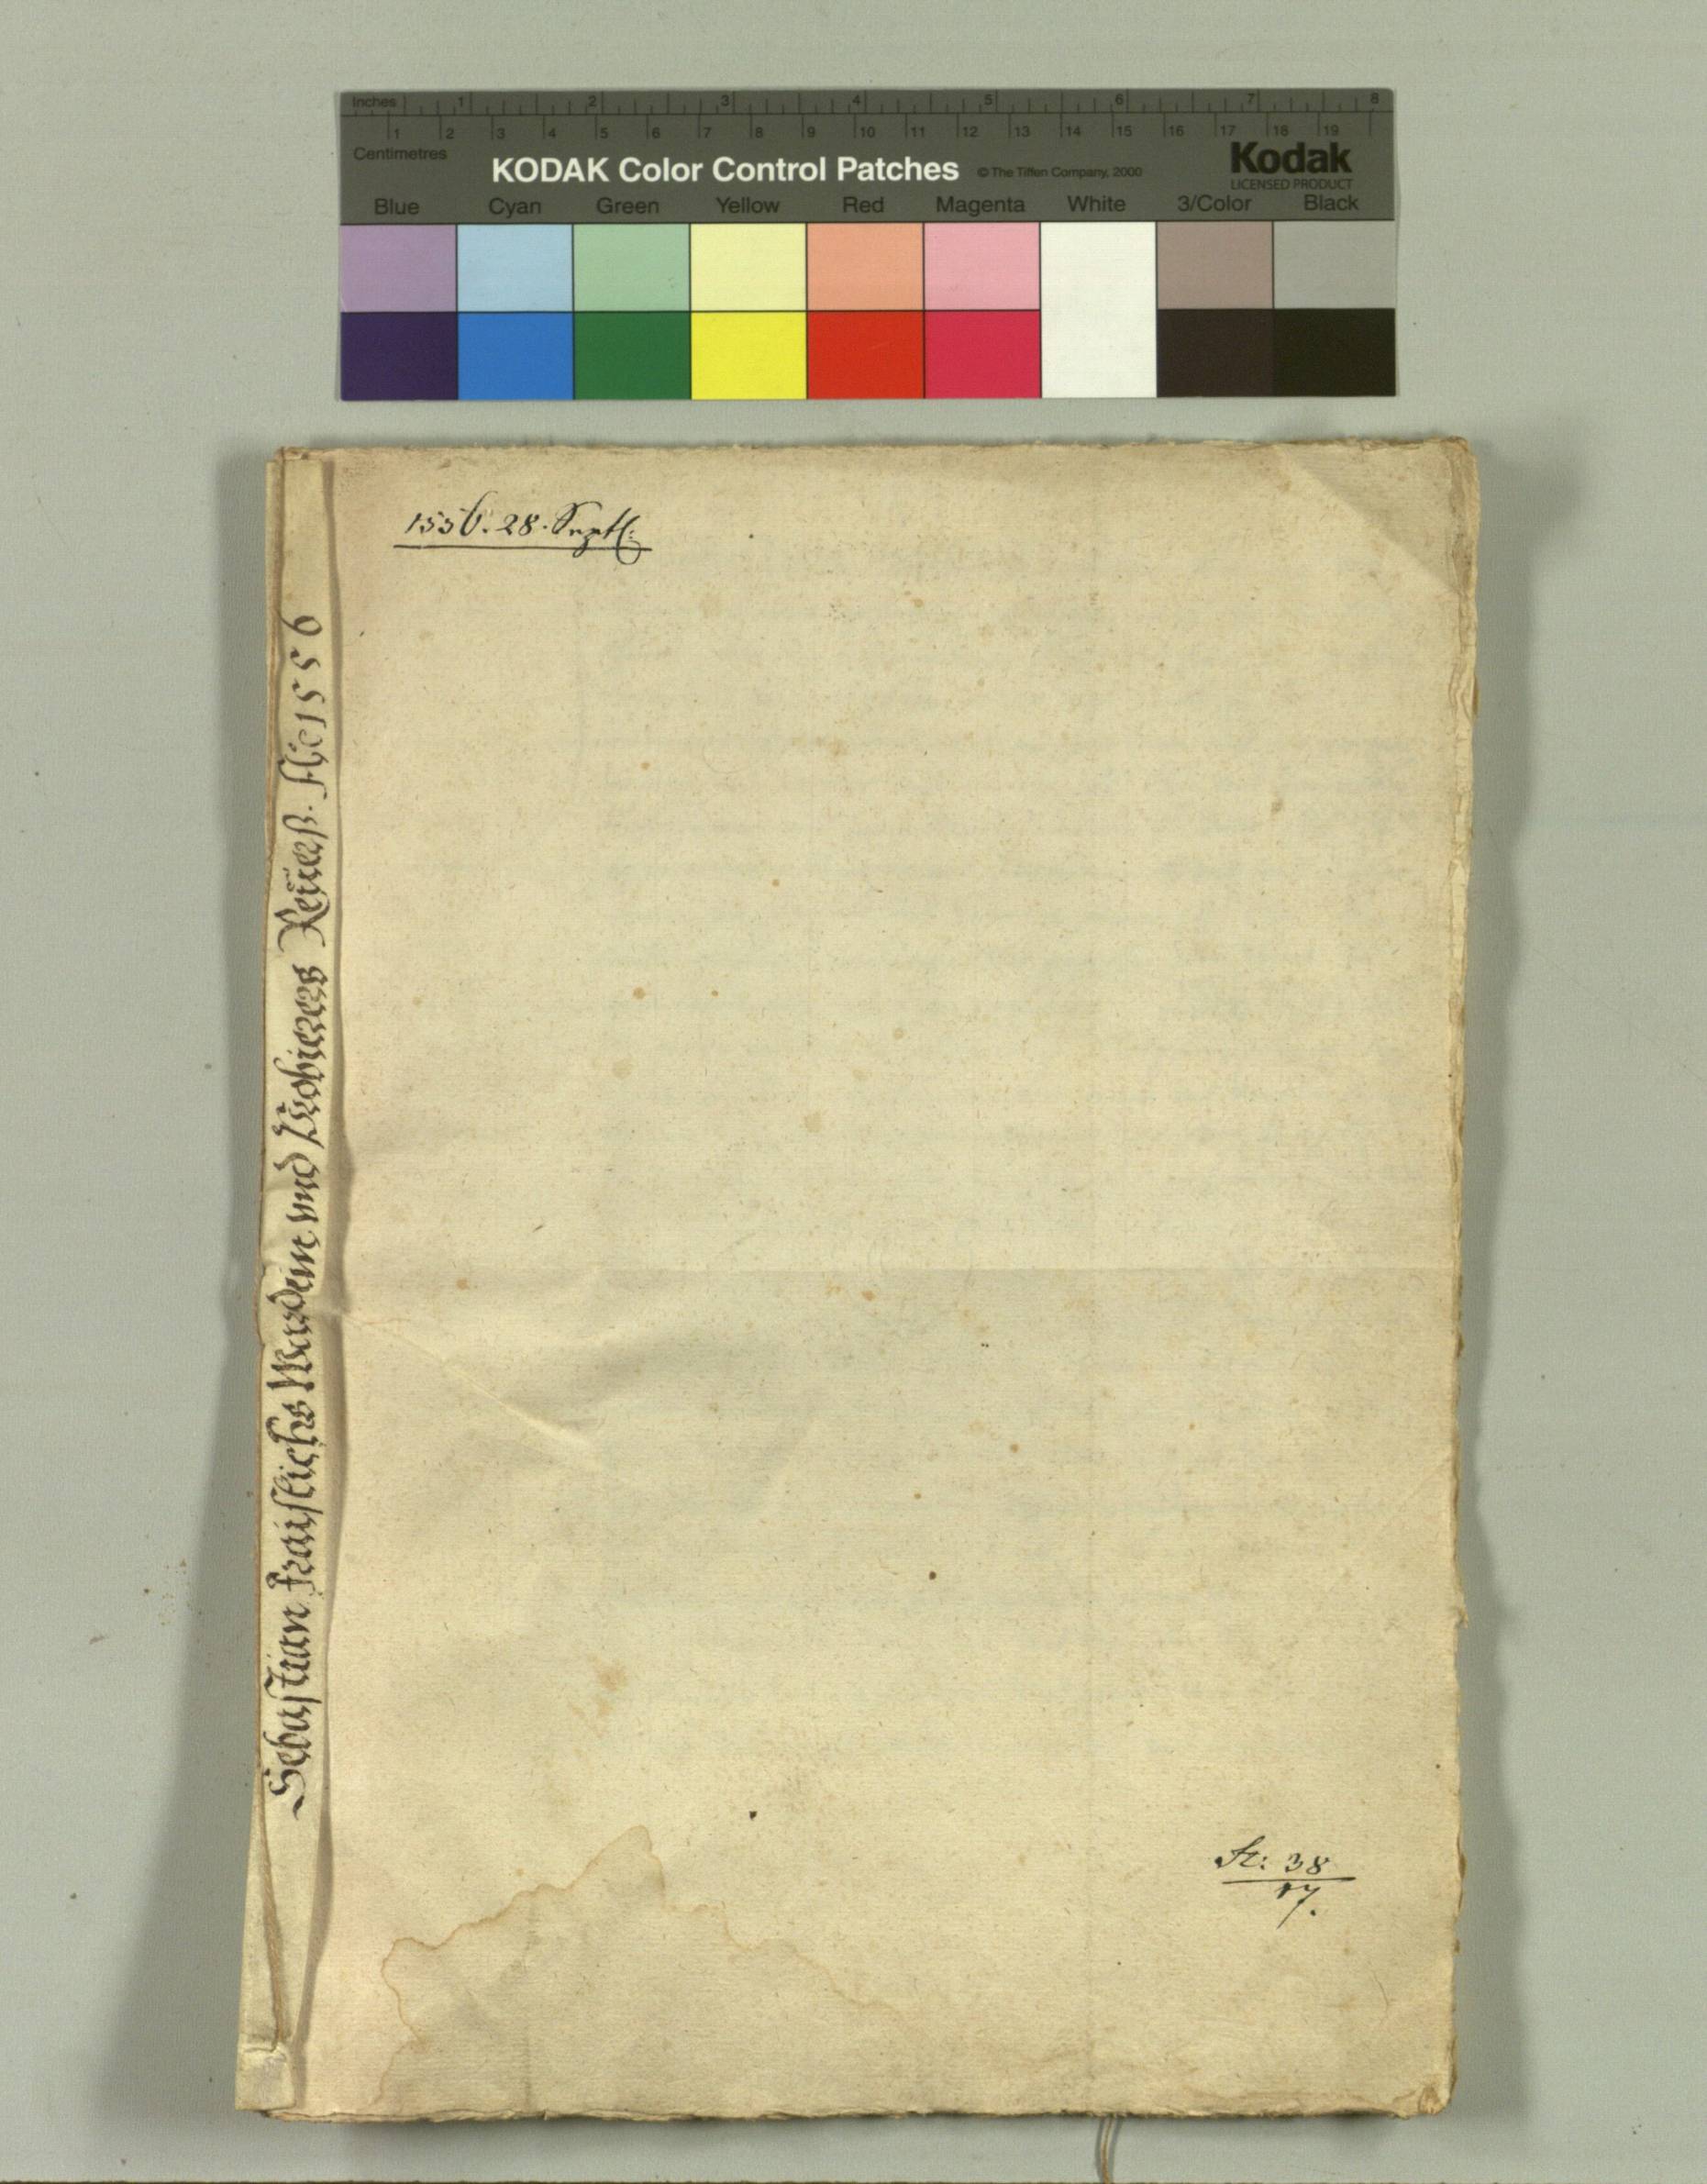 Inches 1 2 3 4 5 6 7 8
1 2 3 4 5 6 7 8 9 10 11 12 13 14 15 16 17 18 19
Centimetres
KODAK Color Control Patches © The Tiffen Company, 2000 Kodak
LICENSED PRODUCT
Blue Cyan Green Yellow Red Magenta White 3/Color Black
1556. 28. Septb:
Sebastian fraislichs Wardein und Probierers Reuerß. 1556
St: 38
17.